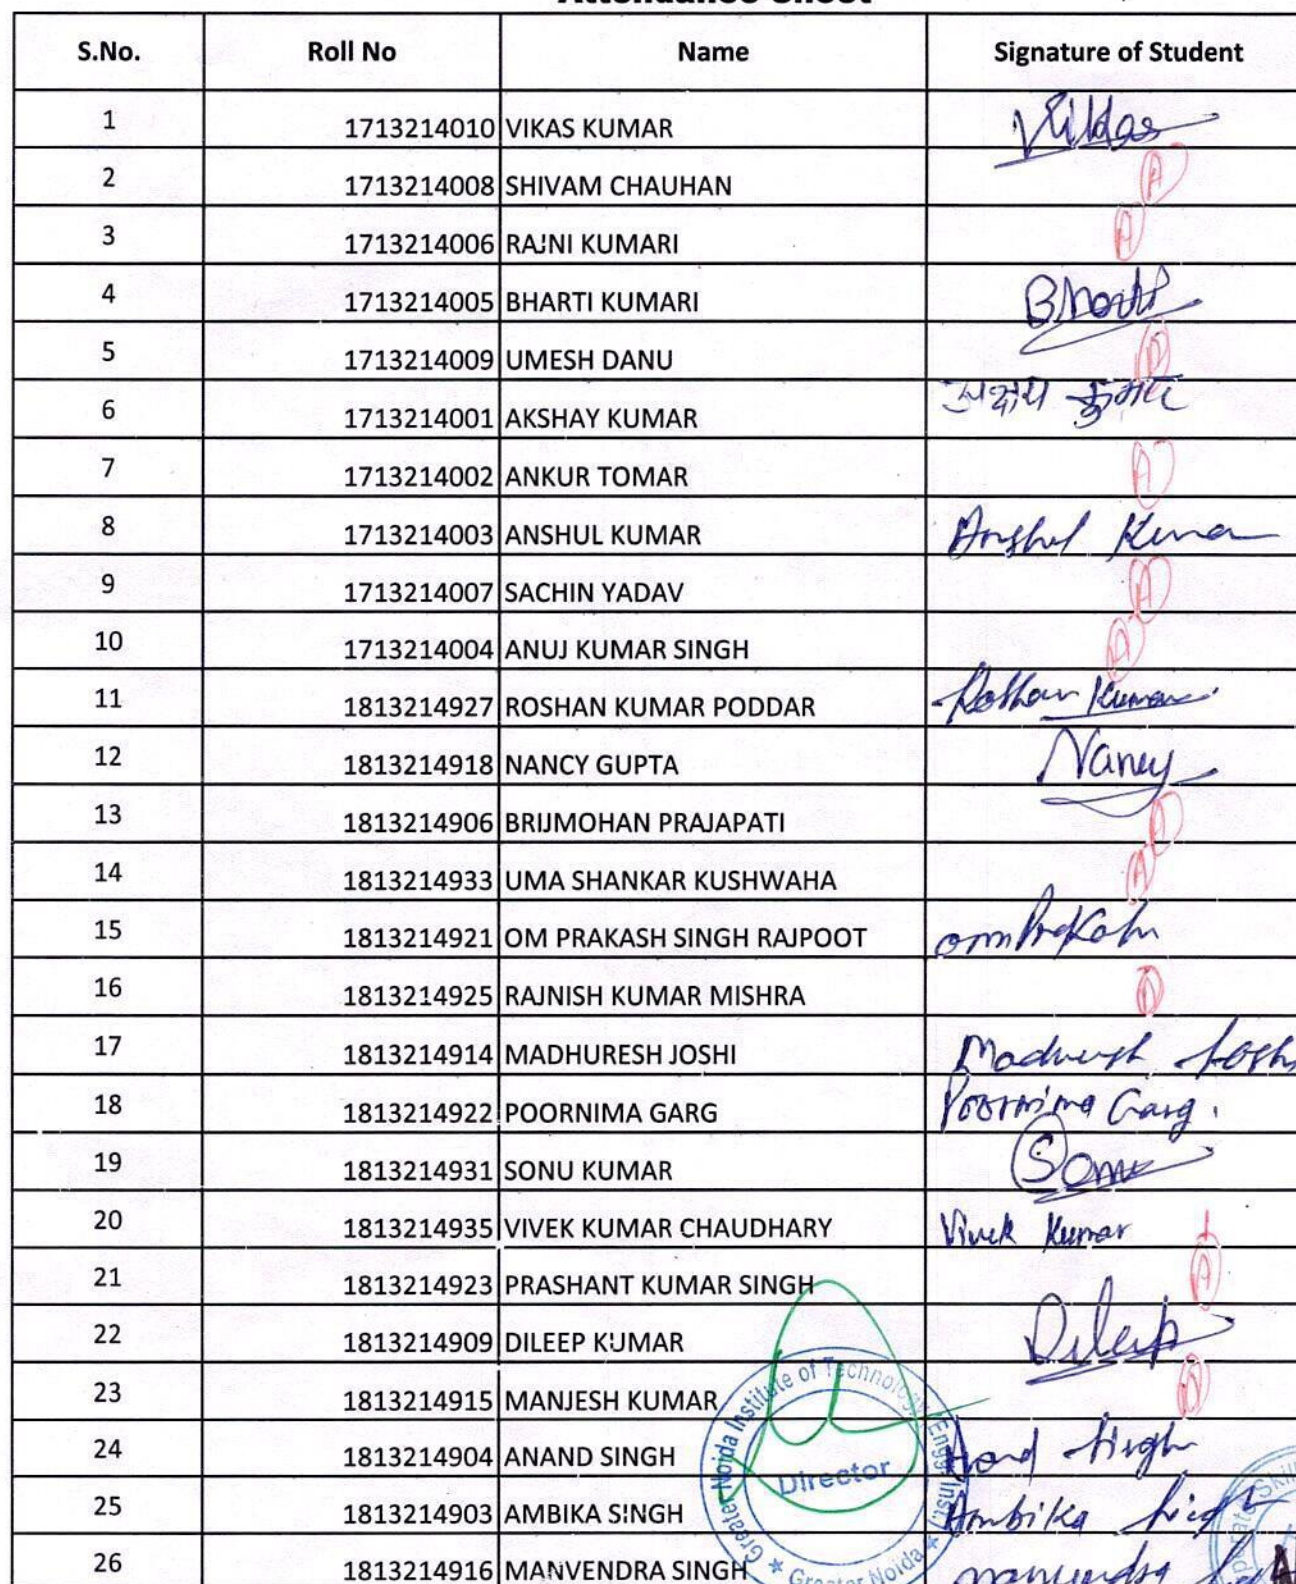 Attendance Sheet
S.No. Roll No Name Signature of Student
1 1713214010 VIKAS KUMAR Vikas
2 1713214008 SHIVAM CHAUHAN A
3 1713214006 RAJNI KUMARI A
4 1713214005 BHARTI KUMARI Bharti
5 1713214009 UMESH DANU A
6 1713214001 AKSHAY KUMAR अक्षय कुमार
7 1713214002 ANKUR TOMAR A
8 1713214003 ANSHUL KUMAR Anshul Kumar
9 1713214007 SACHIN YADAV A
10 1713214004 ANUJ KUMAR SINGH A
11 1813214927 ROSHAN KUMAR PODDAR Roshan Kumar
12 1813214918 NANCY GUPTA Nancy
13 1813214906 BRIJMOHAN PRAJAPATI A
14 1813214933 UMA SHANKAR KUSHWAHA A
15 1813214921 OM PRAKASH SINGH RAJPOOT om Prakash
16 1813214925 RAJNISH KUMAR MISHRA A
17 1813214914 MADHURESH JOSHI Maduresh Joshi
18 1813214922 POORNIMA GARG Poornima Garg.
19 1813214931 SONU KUMAR Sonu
20 1813214935 VIVEK KUMAR CHAUDHARY Vivek Kumar
21 1813214923 PRASHANT KUMAR SINGH A
22 1813214909 DILEEP KUMAR Dileep
23 1813214915 MANJESH KUMAR A
24 1813214904 ANAND SINGH Anand Singh
25 1813214903 AMBIKA SINGH Ambika Singh
26 1813214916 MANVENDRA SINGH manvendra
Greater Noida Institute of Technology (Engg. Inst.)
Director
Greater Noida